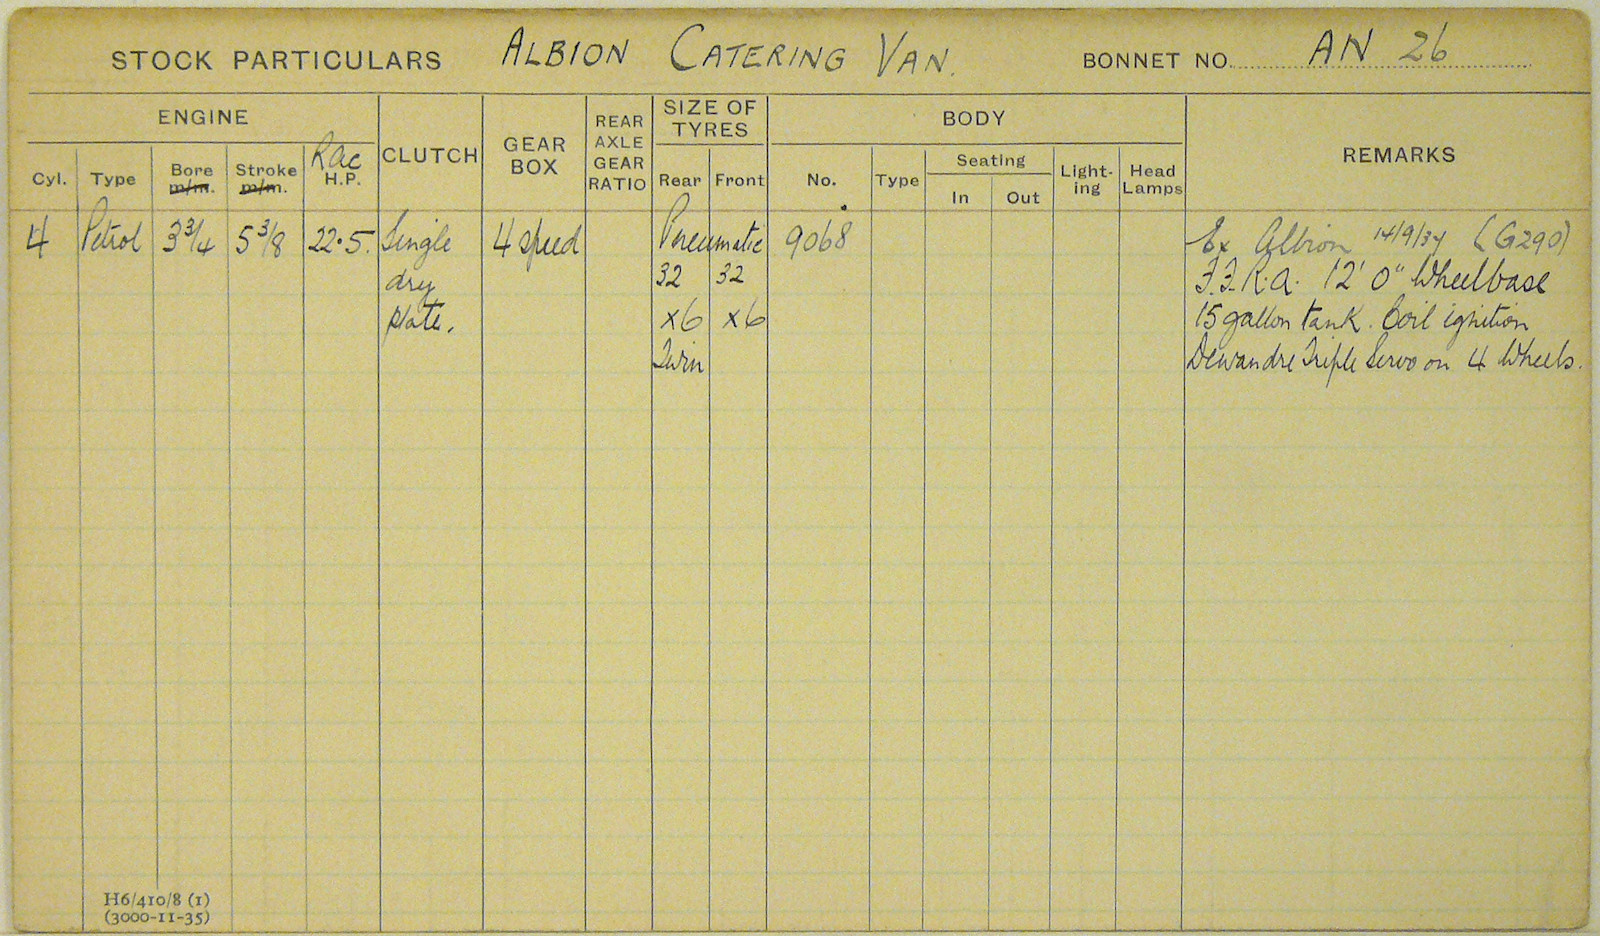 STOCK PARTICULARS ALBION CATERING VAN. BONNET NO. AN 26
ENGINE
Cyl. Type Bore m/m. Stroke m/m. Rac H.P.
CLUTCH
GEAR BOX
REAR AXLE GEAR RATIO
SIZE OF TYRES
Rear Front
BODY
No. Type Seating In Out Light-ing Head Lamps
REMARKS
4 Petrol 3 3/4 5 3/8 22.5. Single 4 speed Pneumatic 9068 Ex Albion 14/9/37 (G290)
dry 32 32 F.F.R.A. 12' 0" Wheelbase
plate. x6 x6 15 gallon tank. Coil ignition
Twin Dewandre Triple Servo on 4 Wheels.
H6/410/8 (1)
(3000-11-35)